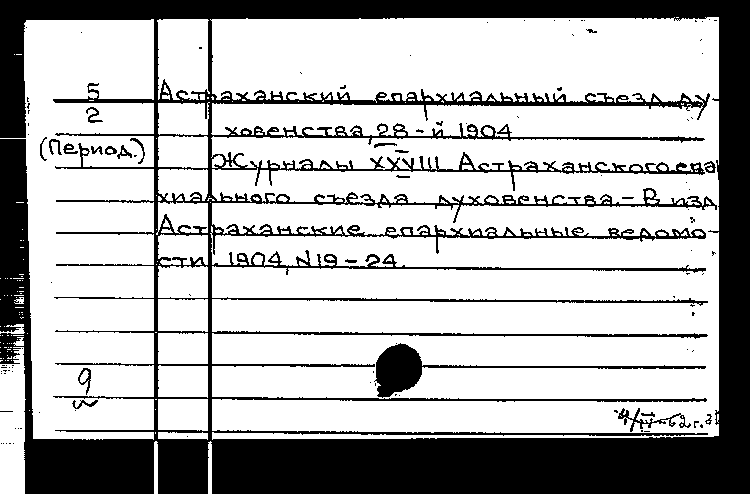 5
2
(Период.)
Астраханский епархиальный съезд ду-
ховенства, 28-й 1904
Журналы XXVIII Астраханского епар
хиального съезда духовенства.- В изд.
Астраханские епархиальные ведомо-
сти. 1904, N19-24.
9